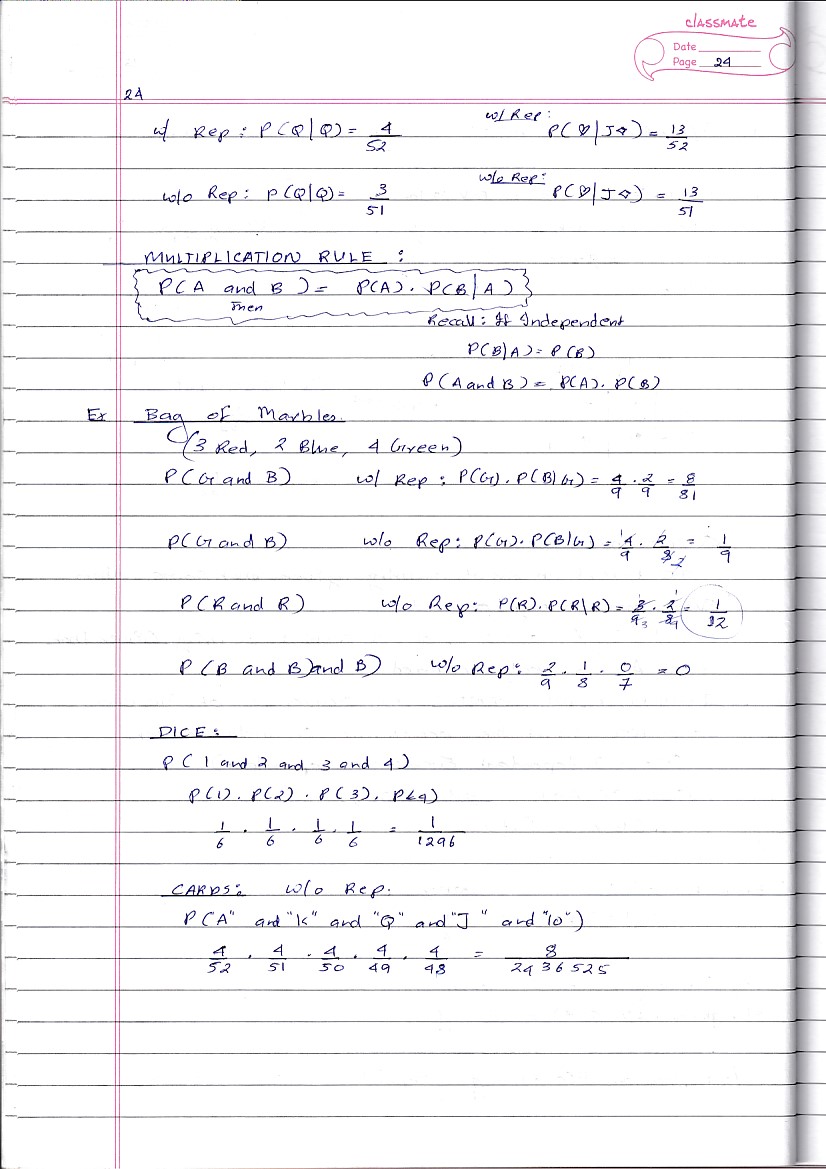 classmate
Date
Page 24
24
w/ Rep: P(Q|Q) = 4/52 w/ Rep: P(♡|J◇) = 13/52
w/o Rep: P(Q|Q) = 3/51 w/o Rep: P(♡|J◇) = 13/51
MULTIPLICATION RULE:
P(A and B) = P(A) · P(B|A)
Then
Recall: If Independent
P(B|A) = P(B)
P(A and B) = P(A) · P(B)
Ex Bag of Marbles
(3 Red, 2 Blue, 4 Green)
P(G and B) w/ Rep: P(G) · P(B|G) = 4/9 · 2/9 = 8/81
P(G and B) w/o Rep: P(G) · P(B|G) = 4/9 · 2/8 = 1/9
P(R and R) w/o Rep: P(R) · P(R|R) = 3/9 · 2/8 = 1/32
P(B and B) and B) w/o Rep: 2/9 · 1/8 · 0/7 = 0
DICE:
P(1 and 2 and 3 and 4)
P(1) · P(2) · P(3) · P(4)
1/6 · 1/6 · 1/6 · 1/6 = 1/1296
CARDS: w/o Rep.
P("A" and "K" and "Q" and "J" and "10")
4/52 · 4/51 · 4/50 · 4/49 · 4/48 = 8/2436525